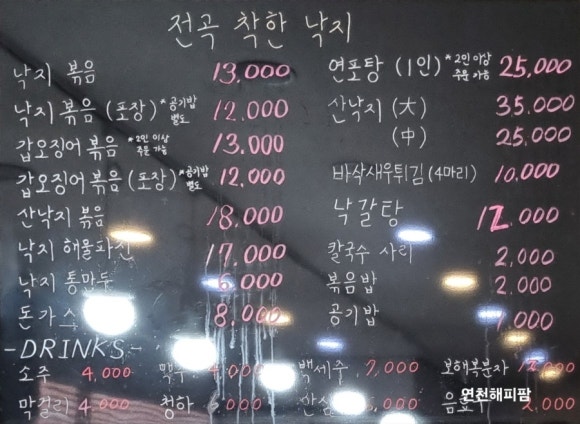 전곡 착한 낙지
낙지 볶음 13,000
낙지 볶음 (포장) *공기밥 별도 12,000
갑오징어 볶음 *2인 이상 주문 가능 13,000
갑오징어 볶음 (포장) *공기밥 별도 12,000
산낙지 볶음 18,000
낙지 해물파전 17,000
낙지 통만두 6,000
돈가스 8,000
연포탕 (1인) *2인 이상 주문 가능 25,000
산낙지 (大) 35.000
(中) 25,000
바삭새우튀김 (4마리) 10,000
낙갈탕 12,000
칼국수 사리 2,000
볶음밥 2,000
공기밥 1,000
-DRINKS-
소주 4,000 맥주 4,000 백세주 7,000 보해복분자
막걸리 4,000 청하 2,000
연천해피팜